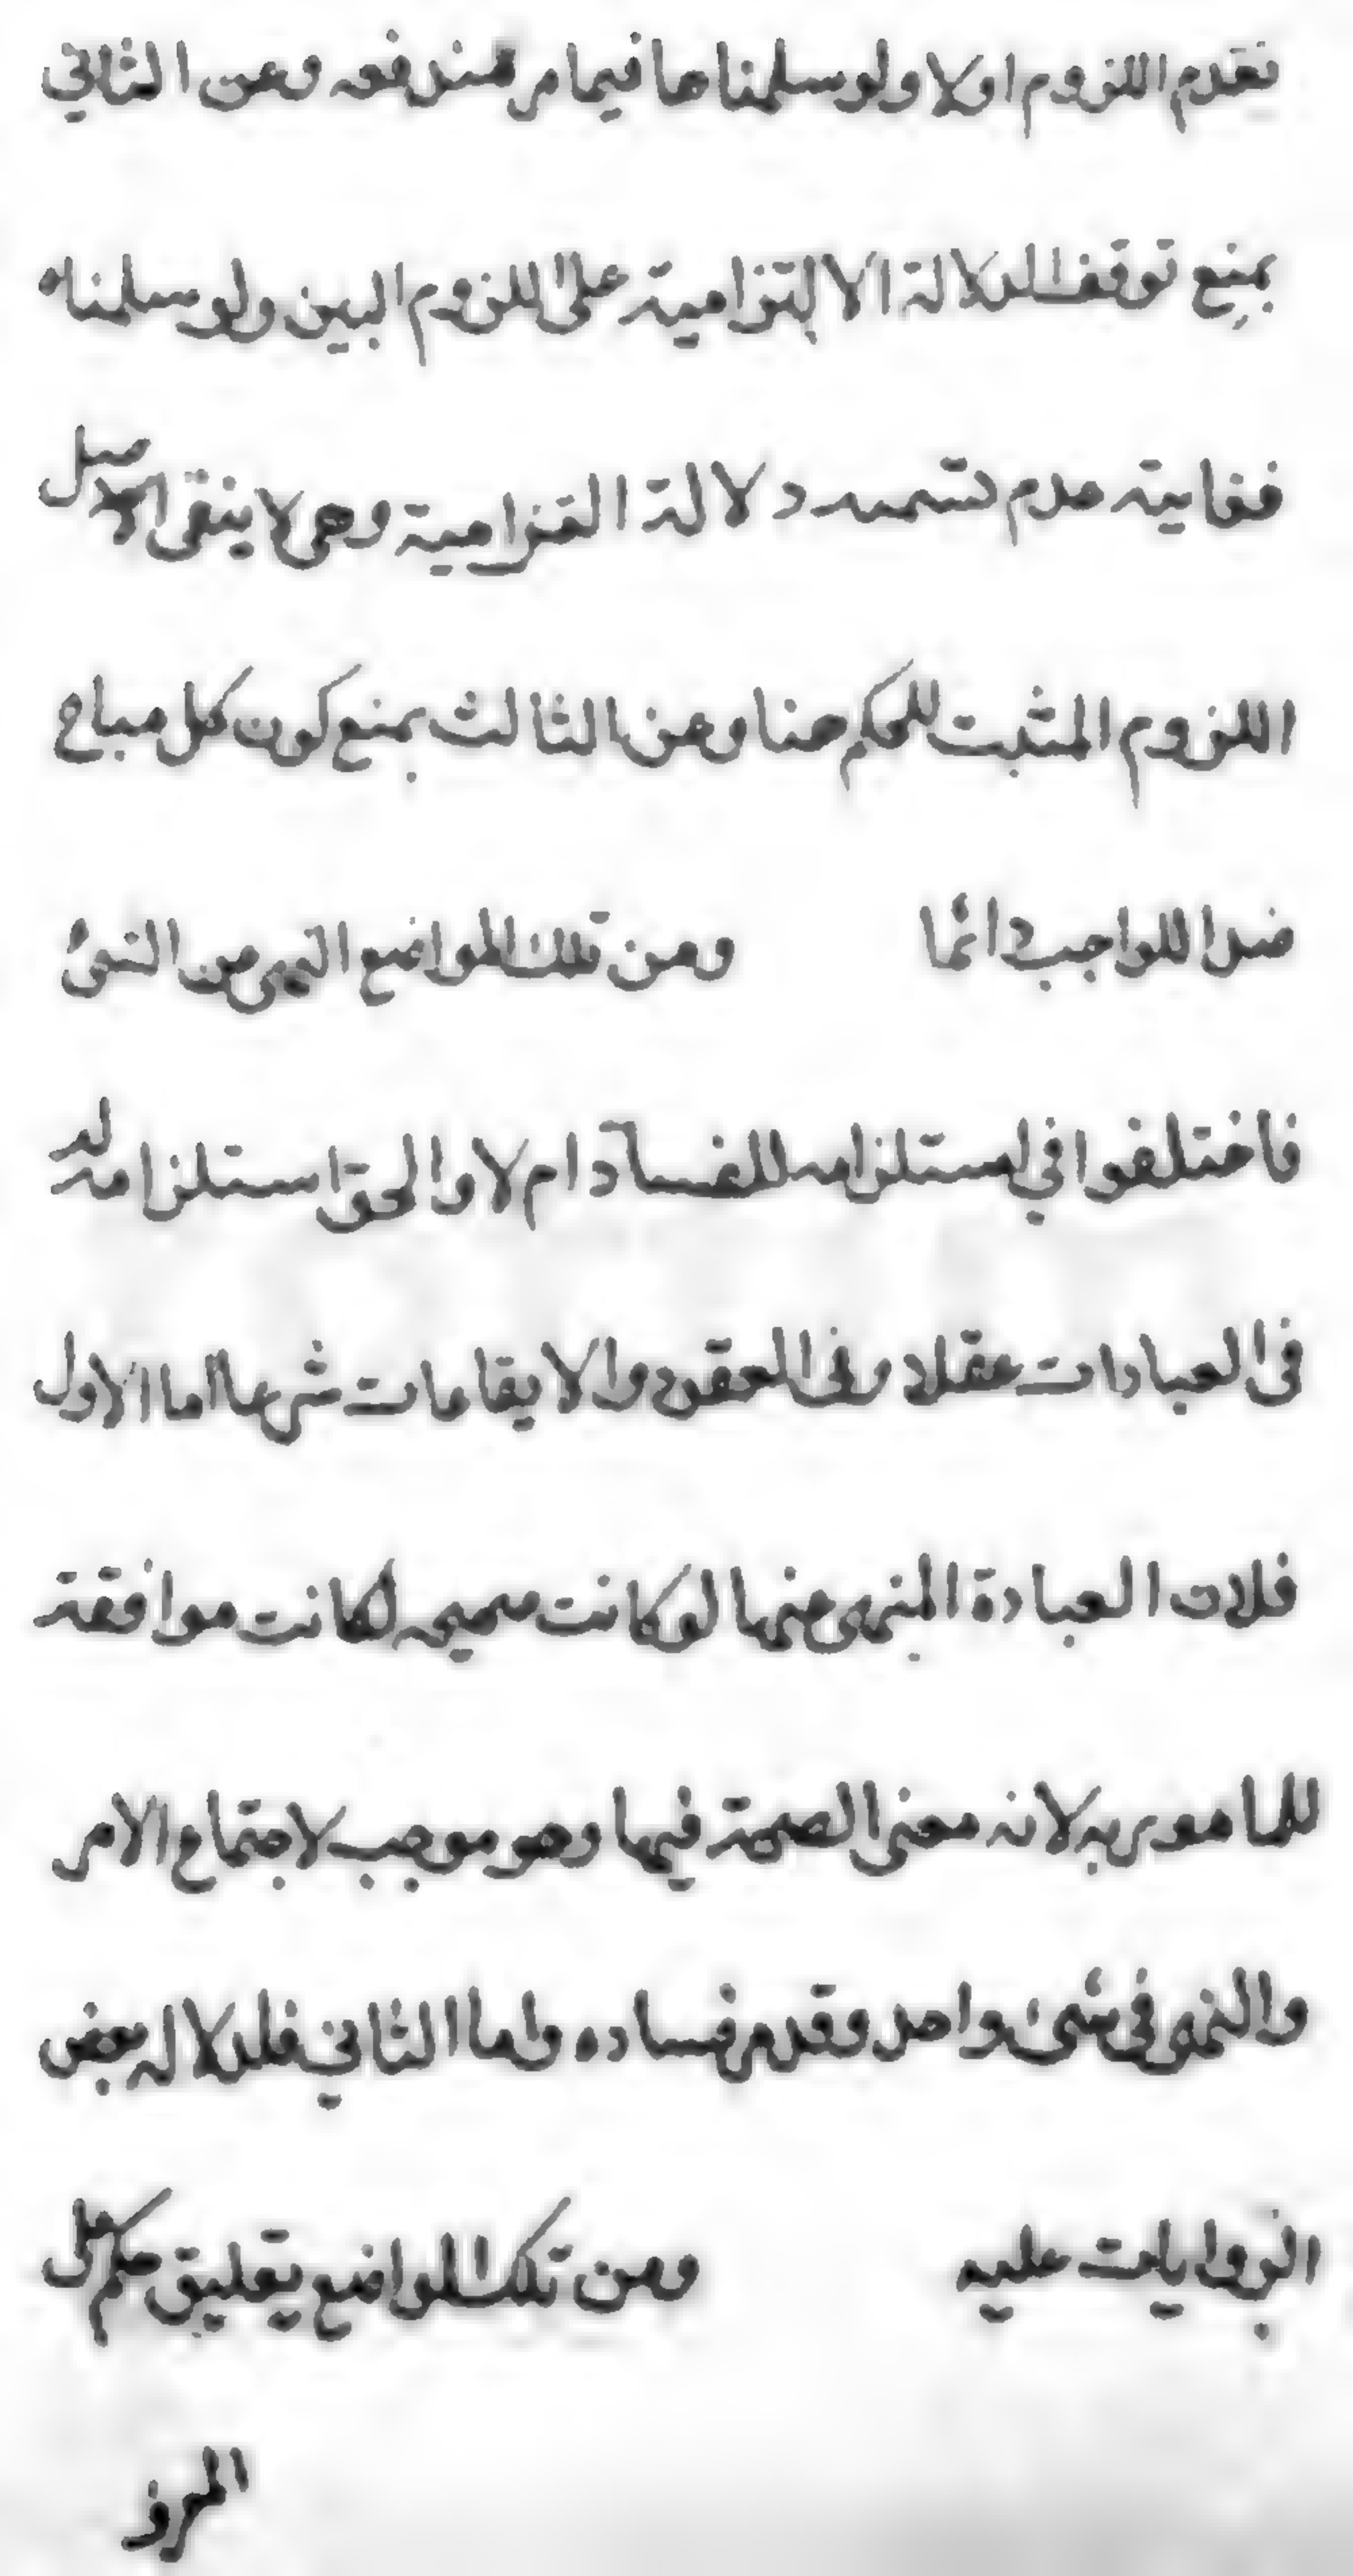 فعدم اللزوم اولا ولو سلمناها فيما مر مندفعه وعن الثاني
بمنع توقف الدلالة الالتزامية على اللزوم البين ولو سلمناه
فغاية عدم تسميته دلالة التزامية وهي لا ينفي الاصل
اللزوم المثبت للحكم هنا وعن الثالث بمنع كون كل مباح
ضدا للواجب دائما ومن تلك المواضع النهي عن الشئ
فاختلفوا في استلزامه للفساد ام لا والحق استلزامه له
في العبادات عقلا وفي العقود والايقاعات شرعا اما الاول
فلان العبادة المنهي عنها لو كانت صحيحه لكانت موافقة
للمامور به لانه معنى الصحة فيها وهو موجب لاجتماع الامر
والنهي في شئ واحد وقد مر فساده واما الثاني فلدلاله بعض
الروايات عليه ومن تلك المواضع تعليق حكم على